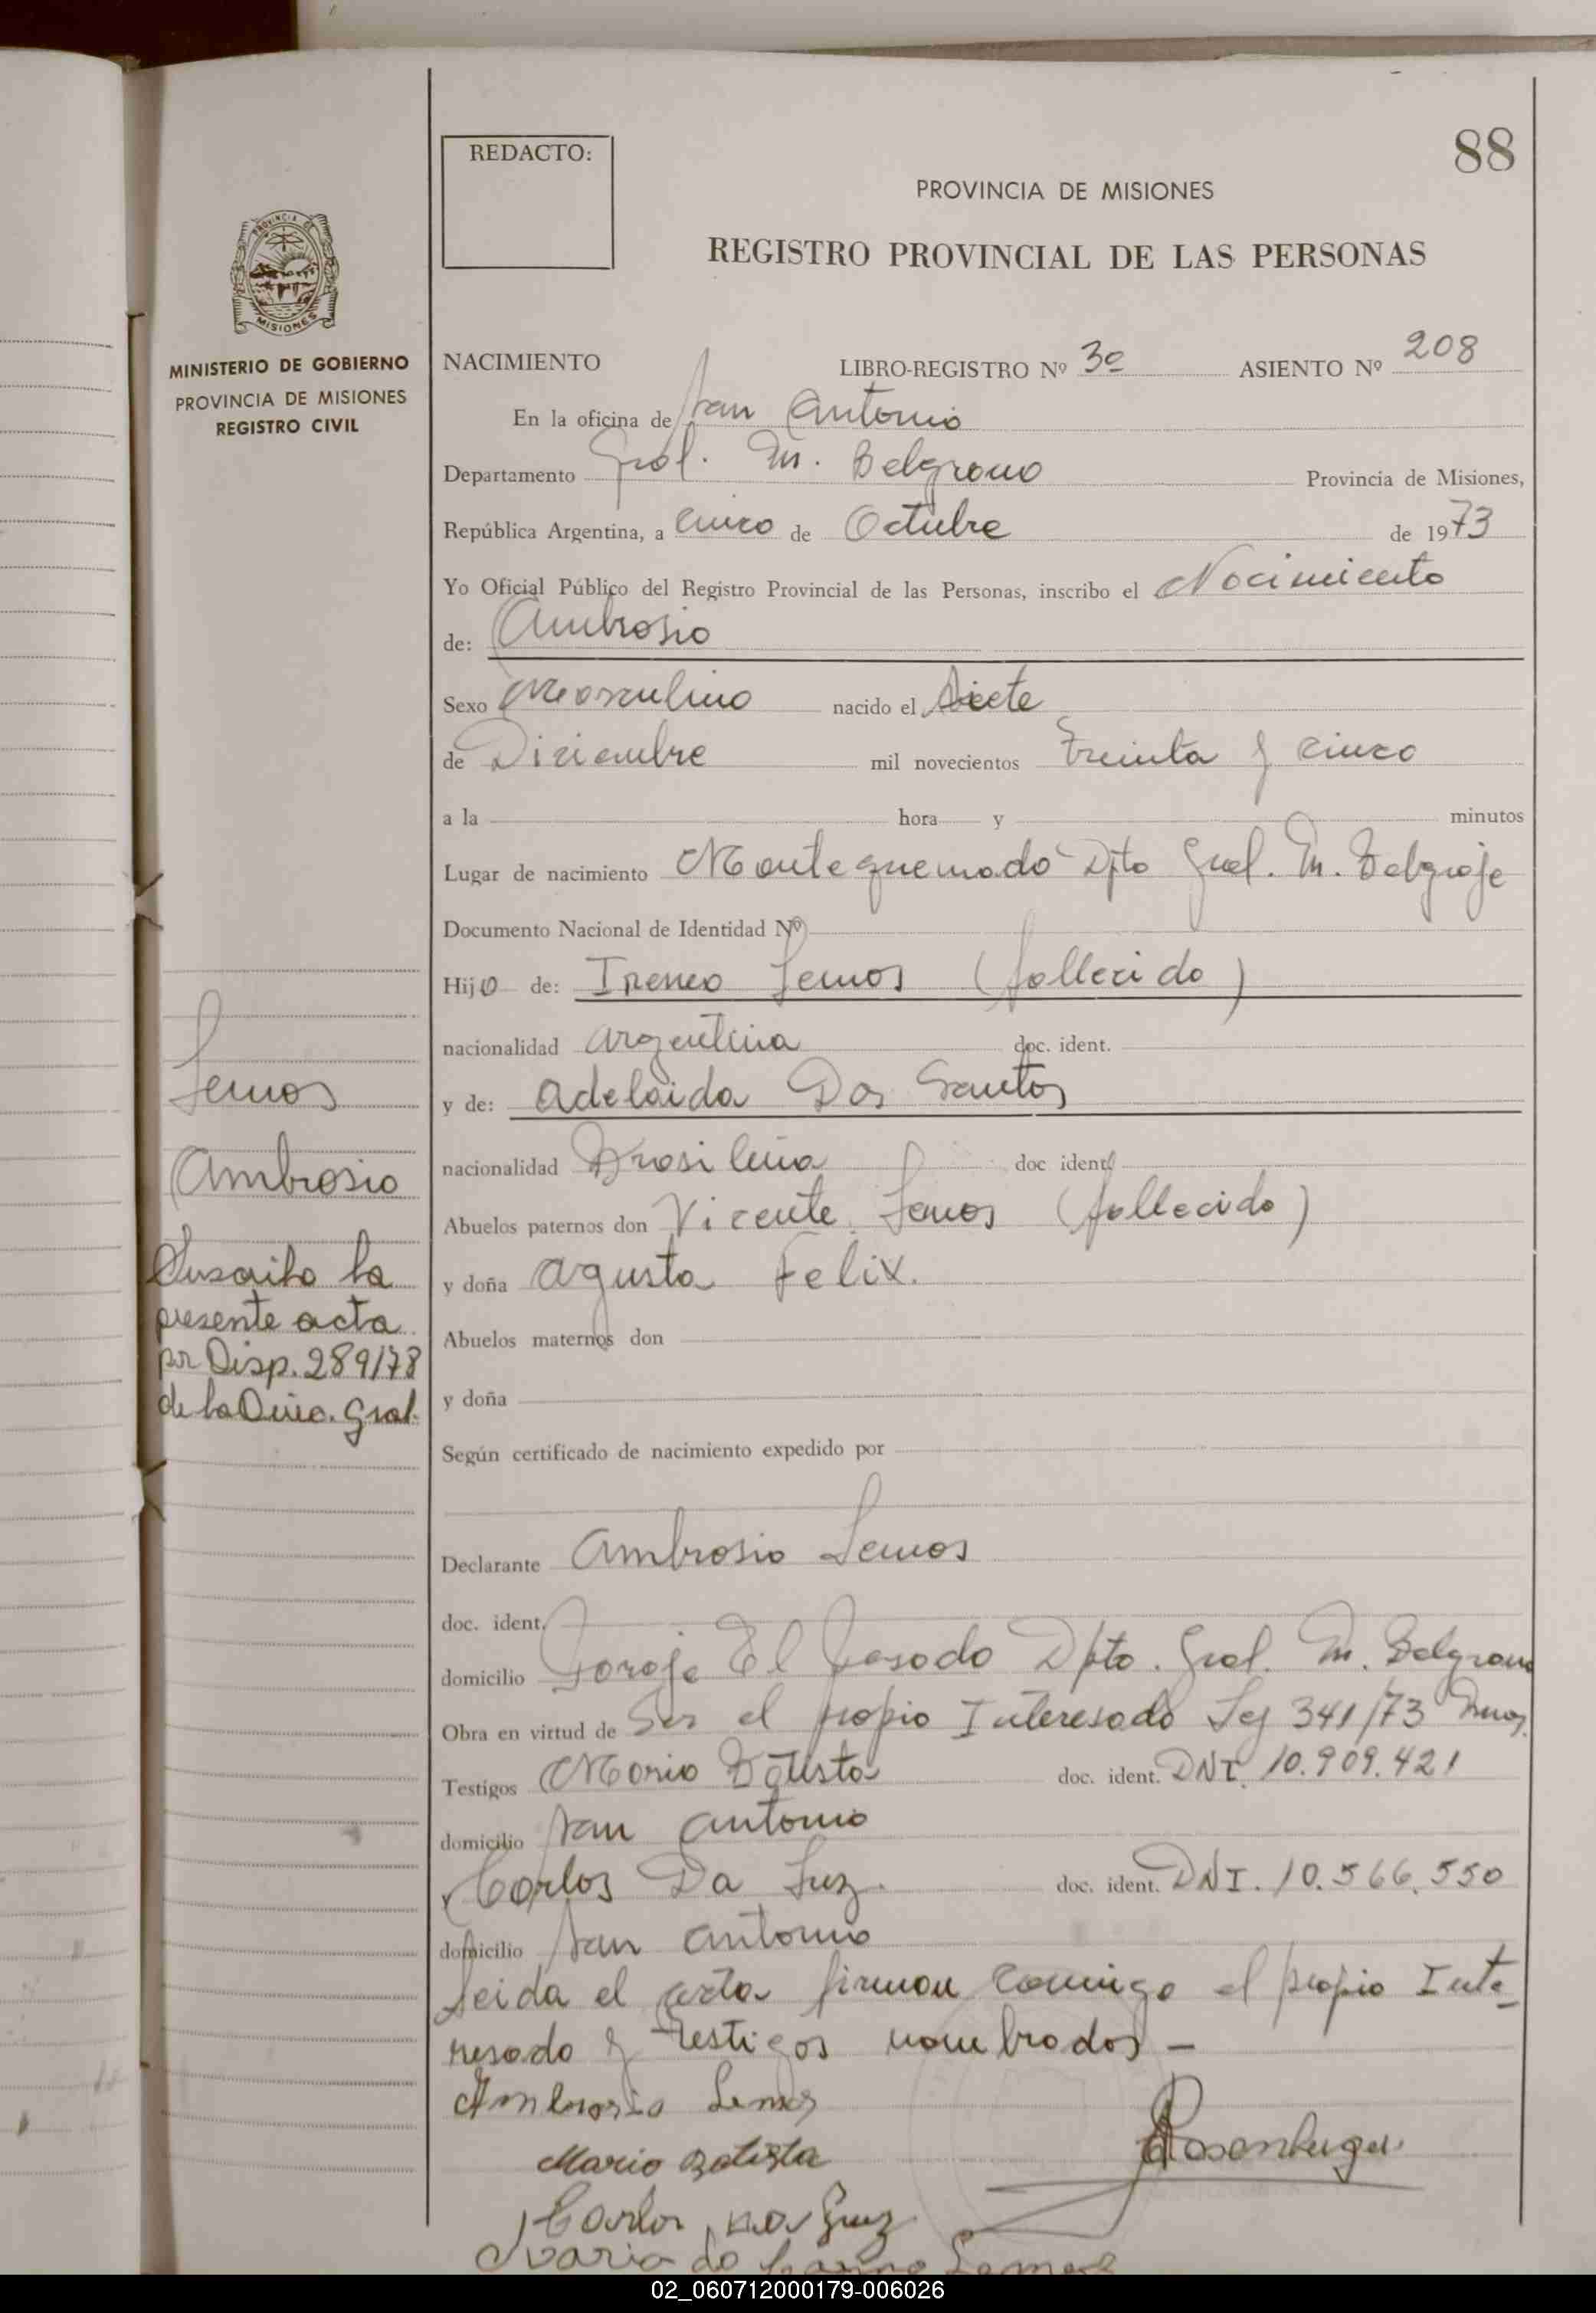 88
REDACTO:
PROVINCIA DE MISIONES
REGISTRO PROVINCIAL DE LAS PERSONAS
PROVINCIA DE
MISIONES
MINISTERIO DE GOBIERNO
PROVINCIA DE MISIONES
REGISTRO CIVIL
NACIMIENTO LIBRO-REGISTRO Nº 3º ASIENTO Nº 208
En la oficina de San Antonio
Departamento Gral. M. Belgrano Provincia de Misiones,
República Argentina, a cinco de Octubre de 1973
Yo Oficial Público del Registro Provincial de las Personas, inscribo el Nacimiento
de: Ambrosio
Sexo Masculino nacido el Siete
de Diciembre mil novecientos treinta y cinco
a la hora y minutos
Lugar de nacimiento Montequemado Dpto Gral. M.
Documento Nacional de Identidad Nº
Hijo de: Ireneo Lemos (fallecido)
nacionalidad argentina doc. ident.
y de: Adelaida Dos Santos
nacionalidad Brasileña doc ident
Abuelos paternos don Vicente Lemos (fallecido)
y doña Agusta Felix.
Abuelos maternos don
y doña
Según certificado de nacimiento expedido por
Declarante Ambrosio Lemos
doc. ident.
domicilio Paraje El Rosado Dpto. Gral. M. Belgrano
Obra en virtud de Ser el propio Interesado Ley 341/73
Testigos Mario Batista doc. ident. DNI. 10.909.421
domicilio San Antonio
Carlos Da Luz. doc. ident. DNI. 10.566.550
domicilio San Antonio
Leida el acta firman comigo el propio Inte-
resado y testigos nombrados —
Ambrosio Lemos
Mario Batista
Lemos
Ambrosio
Inscrito la
presente acta
por Disp. 289/78
de la Direc. Gral.
02_060712000179-006026